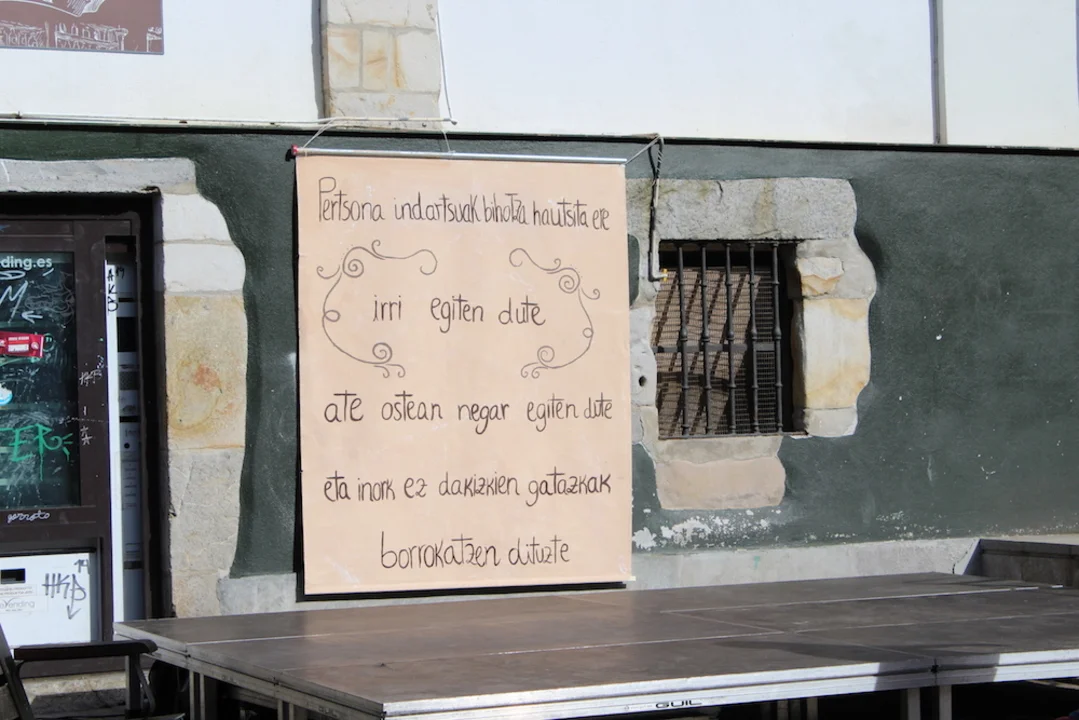 Pertsona indartsuak bihotza hautsita ere
irri egiten dute
ate ostean negar egiten dute
eta inork ez dakizkien gatazkak
borrokatzen dituzte
ding.es
HKB
GUIL